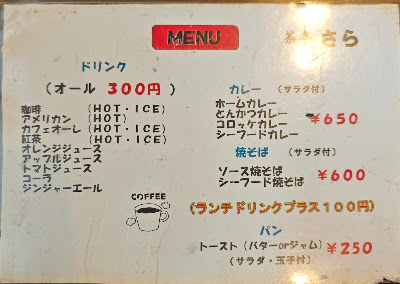 MENU
茶房 さら
ドリンク
(オール 300円 )
珈琲 (HOT・ICE)
アメリカン (HOT)
カフェオーレ (HOT・ICE)
紅茶 (HOT・ICE)
オレンジジュース
アップルジュース
トマトジュース
コーラ
ジンジャーエール
COFFEE
カレー (サラダ付)
ホームカレー
とんかつカレー
コロッケカレー
シーフードカレー
¥650
焼そば (サラダ付)
ソース焼そば
シーフード焼そば
¥600
(ランチドリンクプラス100円)
パン
トースト (バターorジャム) ¥250
(サラダ・玉子付)